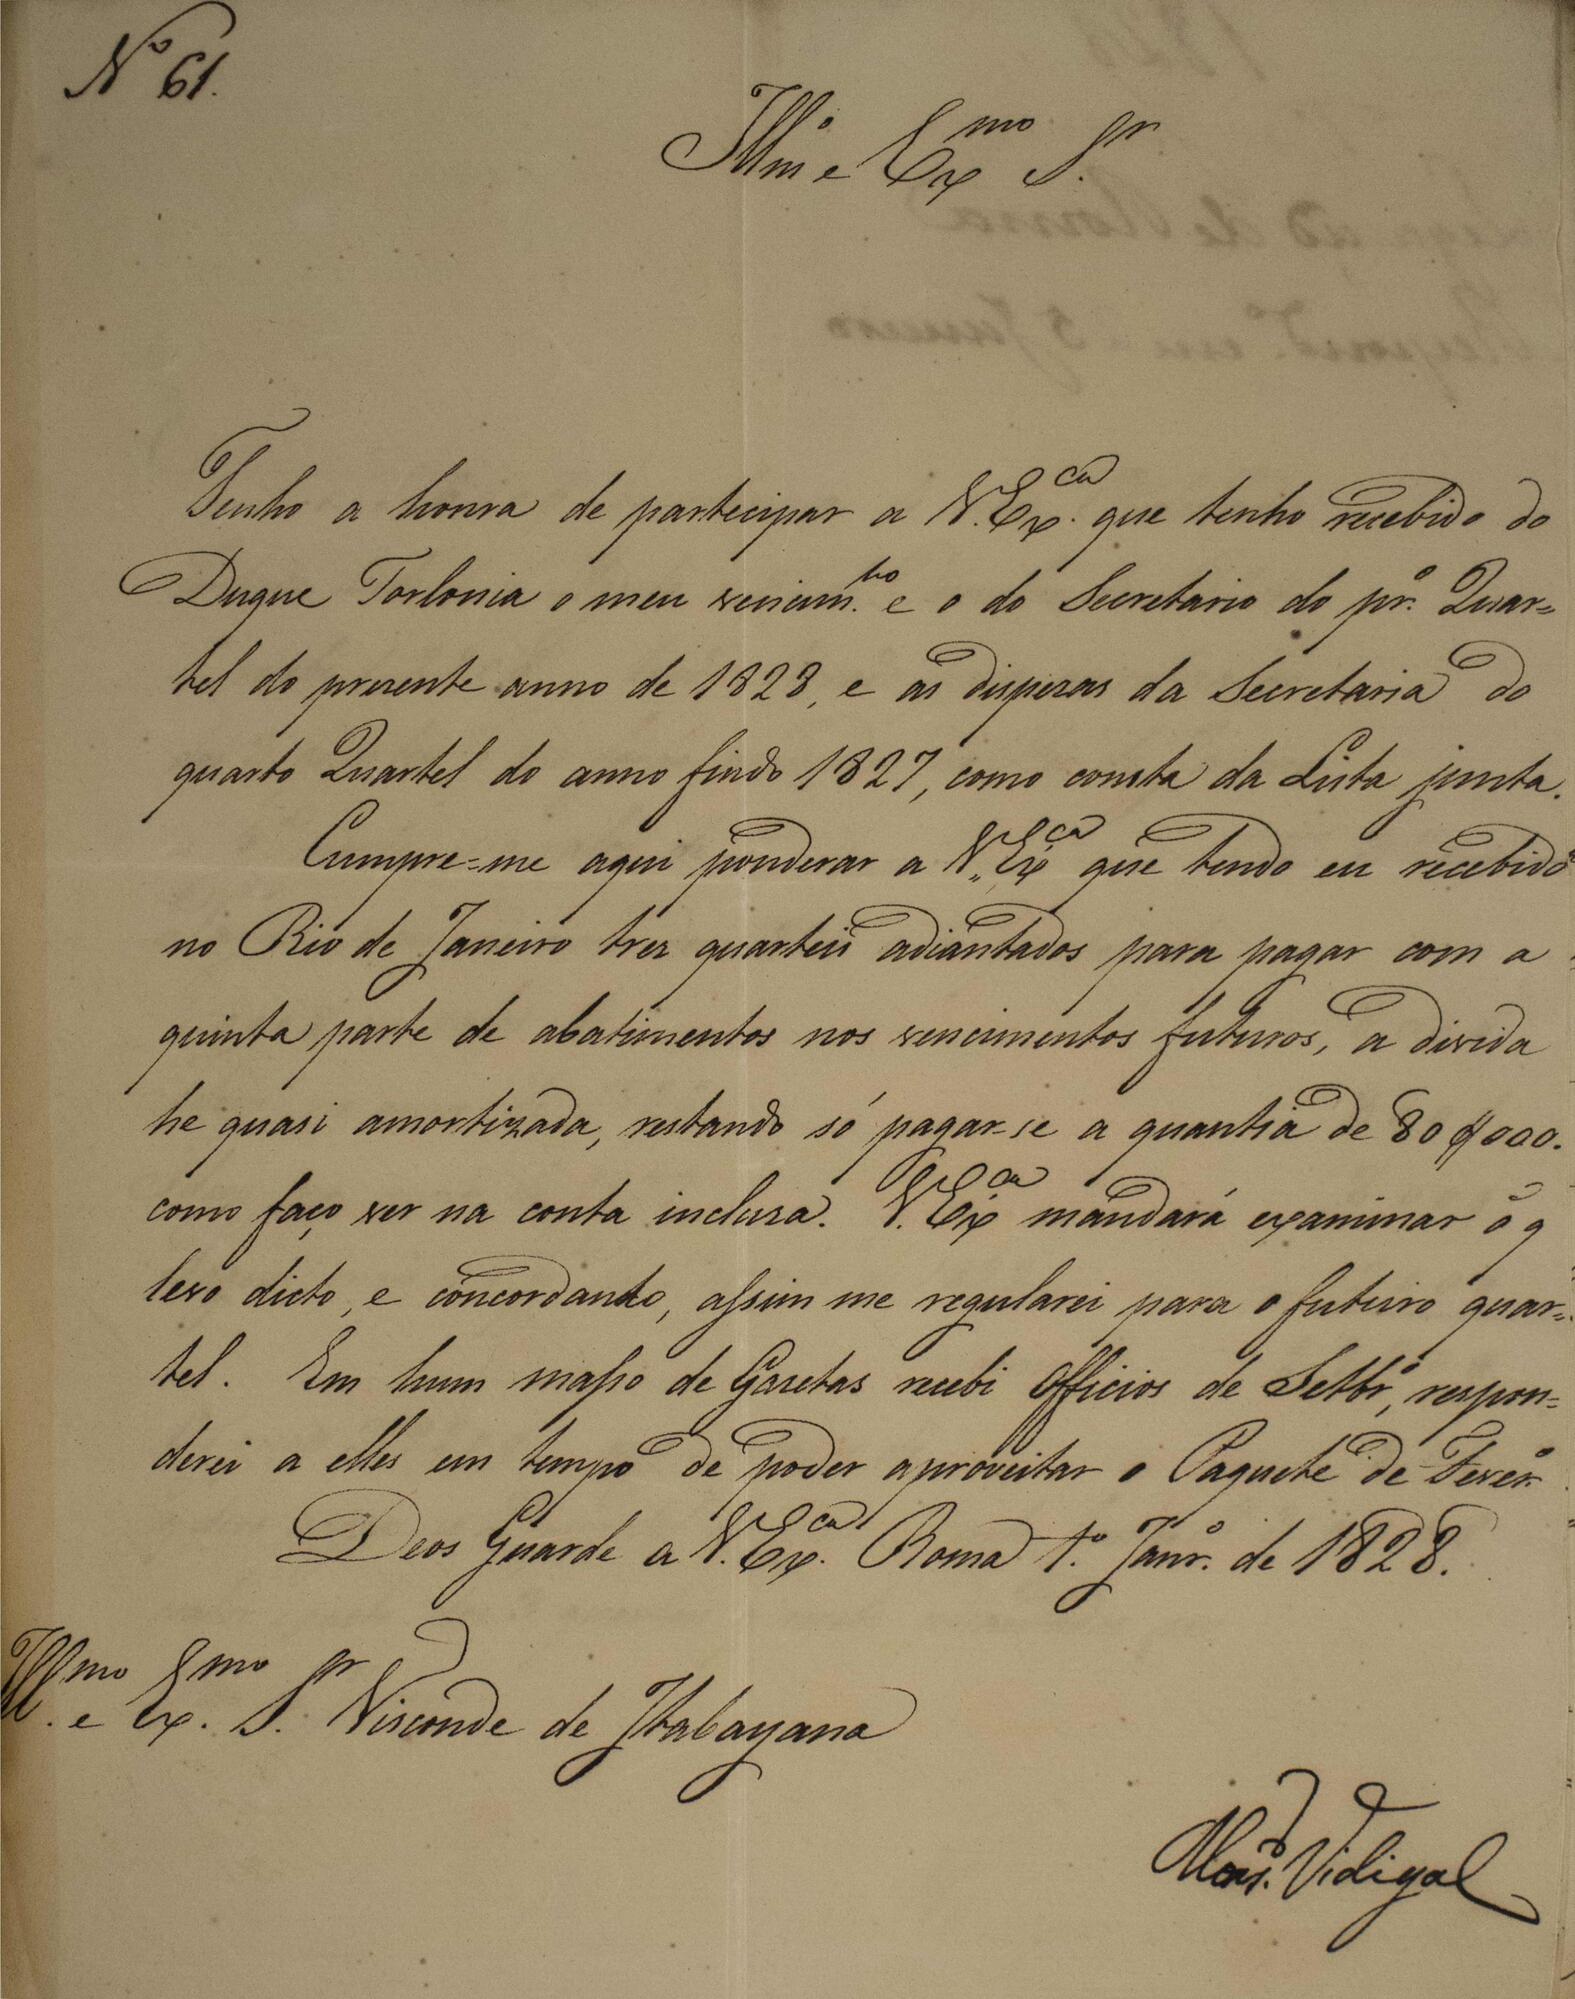 Nº 61.
Illmº e Exmo Sr.
Tenho a honra de partecipar a V. Exca. que tenho recebido do
Duque Torlonia o meu vencimto. e o do Secretario do prº. Quar=
tel do prezente anno de 1828, e as dispezas da Secretaria do
quarto Quartel do anno findo 1827, como consta da Lista junta.
Cumpre=me aqui ponderar a V. Exca que tendo eu recebido
no Rio de Janeiro trez quarteis adiantados para pagar com a
quinta parte de abatimentos nos vencimentos futuros, a divida
he quasi amortizada, restando só pagar-se a quantia de 80$000.
como faço ver na conta incluza. V. Exca mandará examinar o q
levo dicto, e concordando, assim me regularei para o futuro quar=
tel. Em hum masso de Gazetas recebi Officios de Setbrº, respon=
derei a elles em tempo de poder aproveitar o Paquete de Feverº.
Deos Guarde a V. Exca. Roma 1º. Janrº. de 1828.
Illmo. e Exmo. Sr. Visconde de Itabayana
Monsr. Vidigal